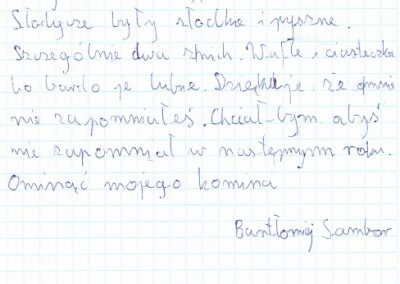 Słodycze były słodkie i pyszne.
Szczególnie dwa z nich. Wafle i ciasteczka
bo bardzo je lubie. Dziękuje, że o mnie
nie zapomniałeś. Chciał-bym abyś
nie zapomniał w następnym roku.
Ominąć mojego komina
Bartłomiej Sambor